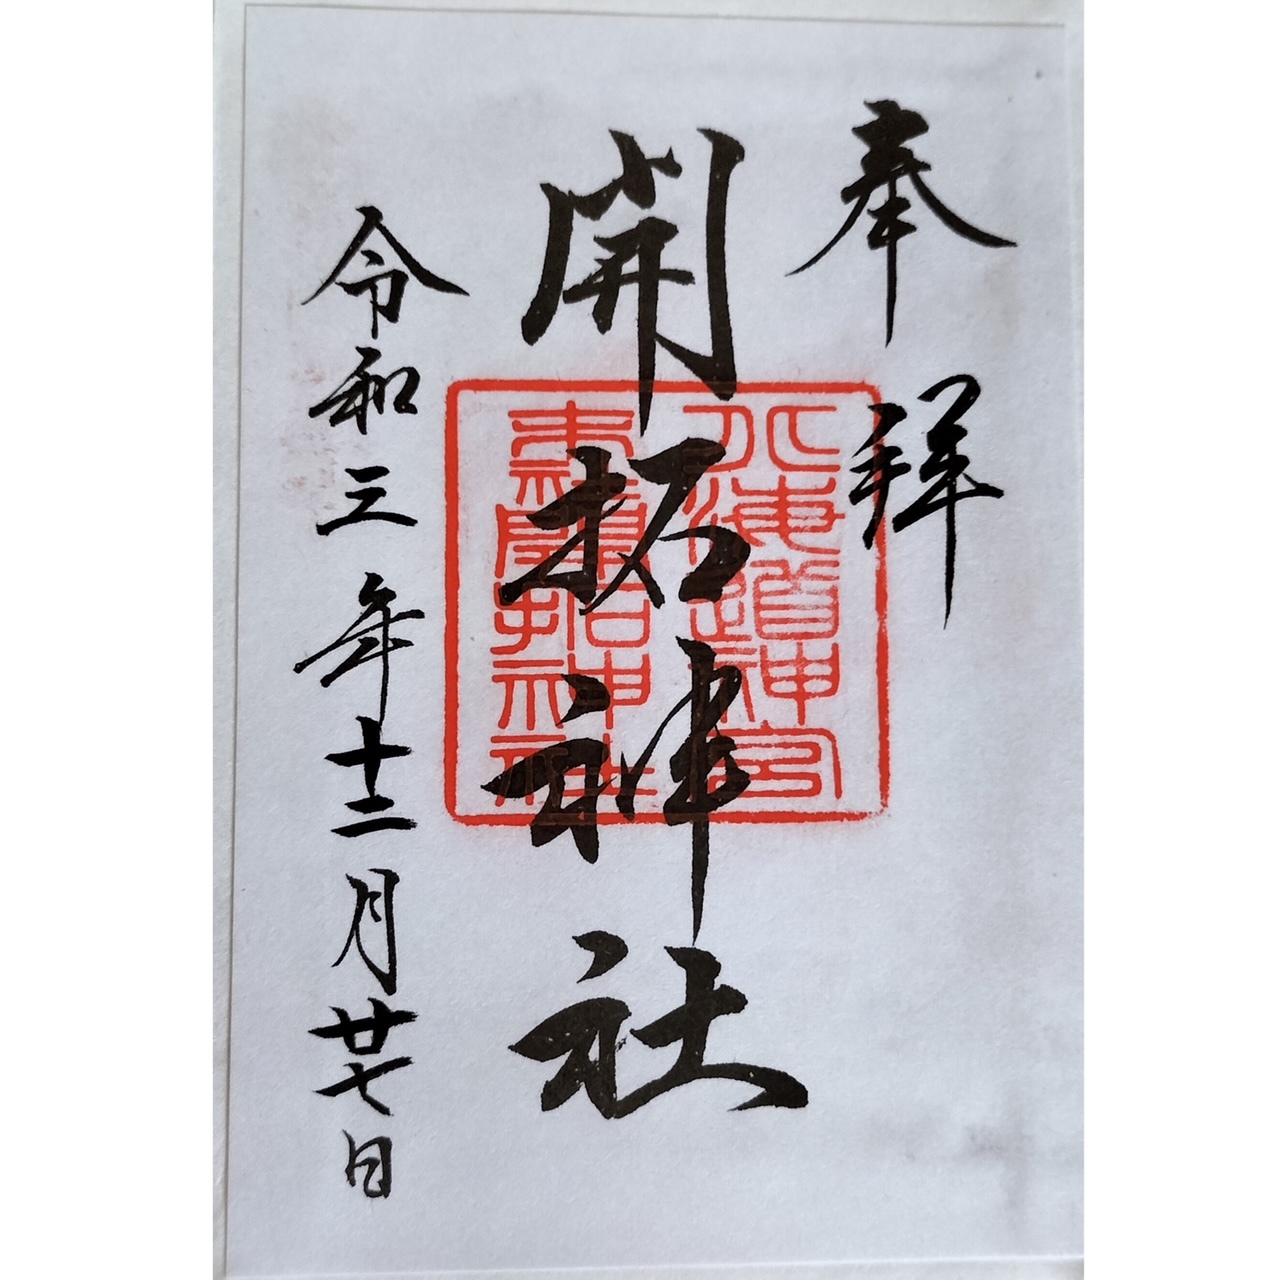 奉拝
開拓神社
北海道神宮
末社開拓神社
令和三年十二月廿七日